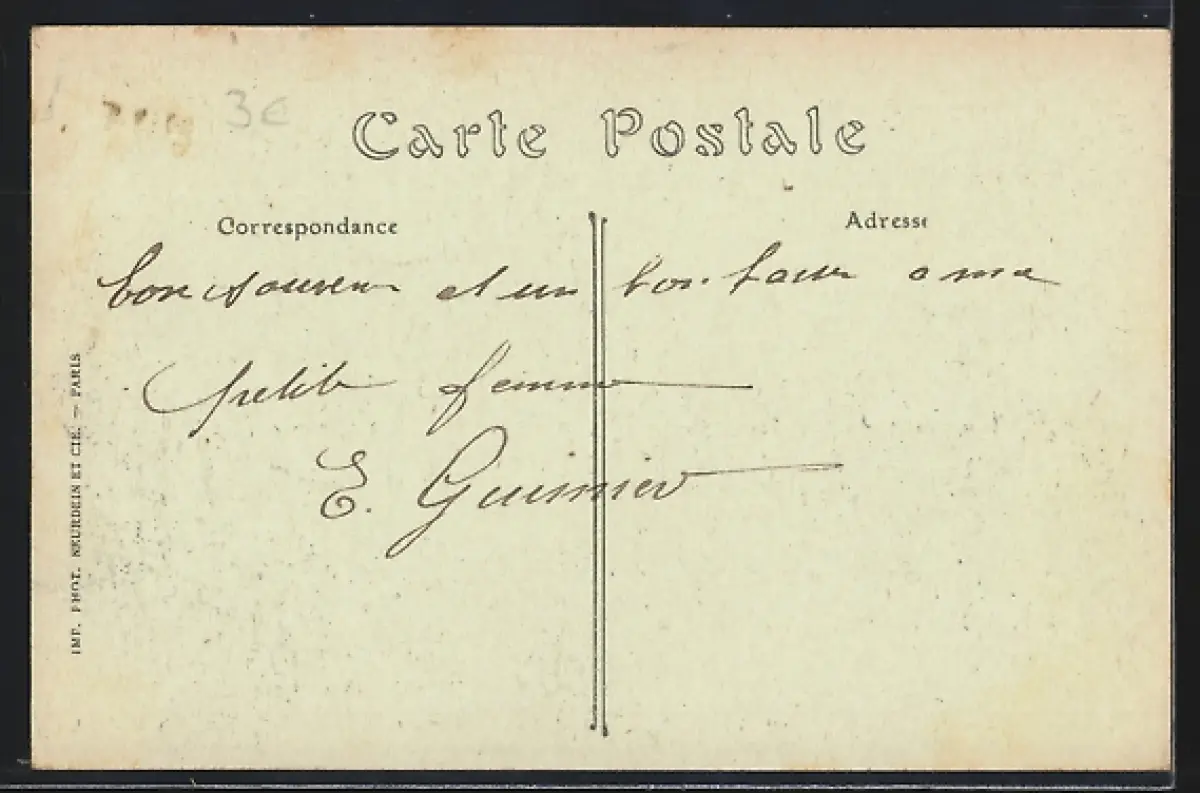 3e
Carte Postale
Correspondance
Adresse
bon souvenir et un bon baiser a ma
petite femme
E. Guimier
IMP. PHOT. NEURDEIN ET CIE. — PARIS